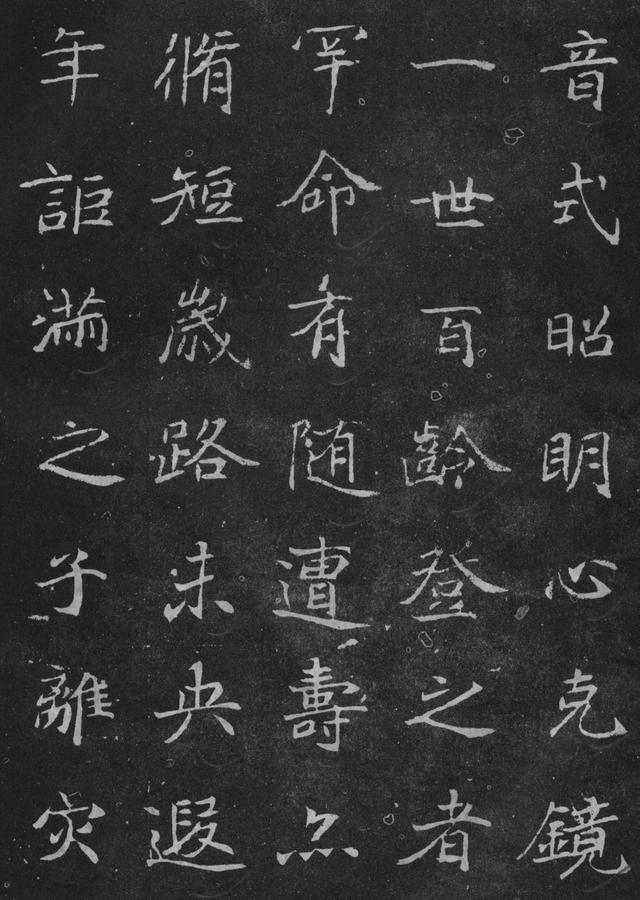 音式昭明心克鏡
一世百齡登之者
罕命有随遭壽尒
脩短歲路未央遐
年詎滿之子離灾